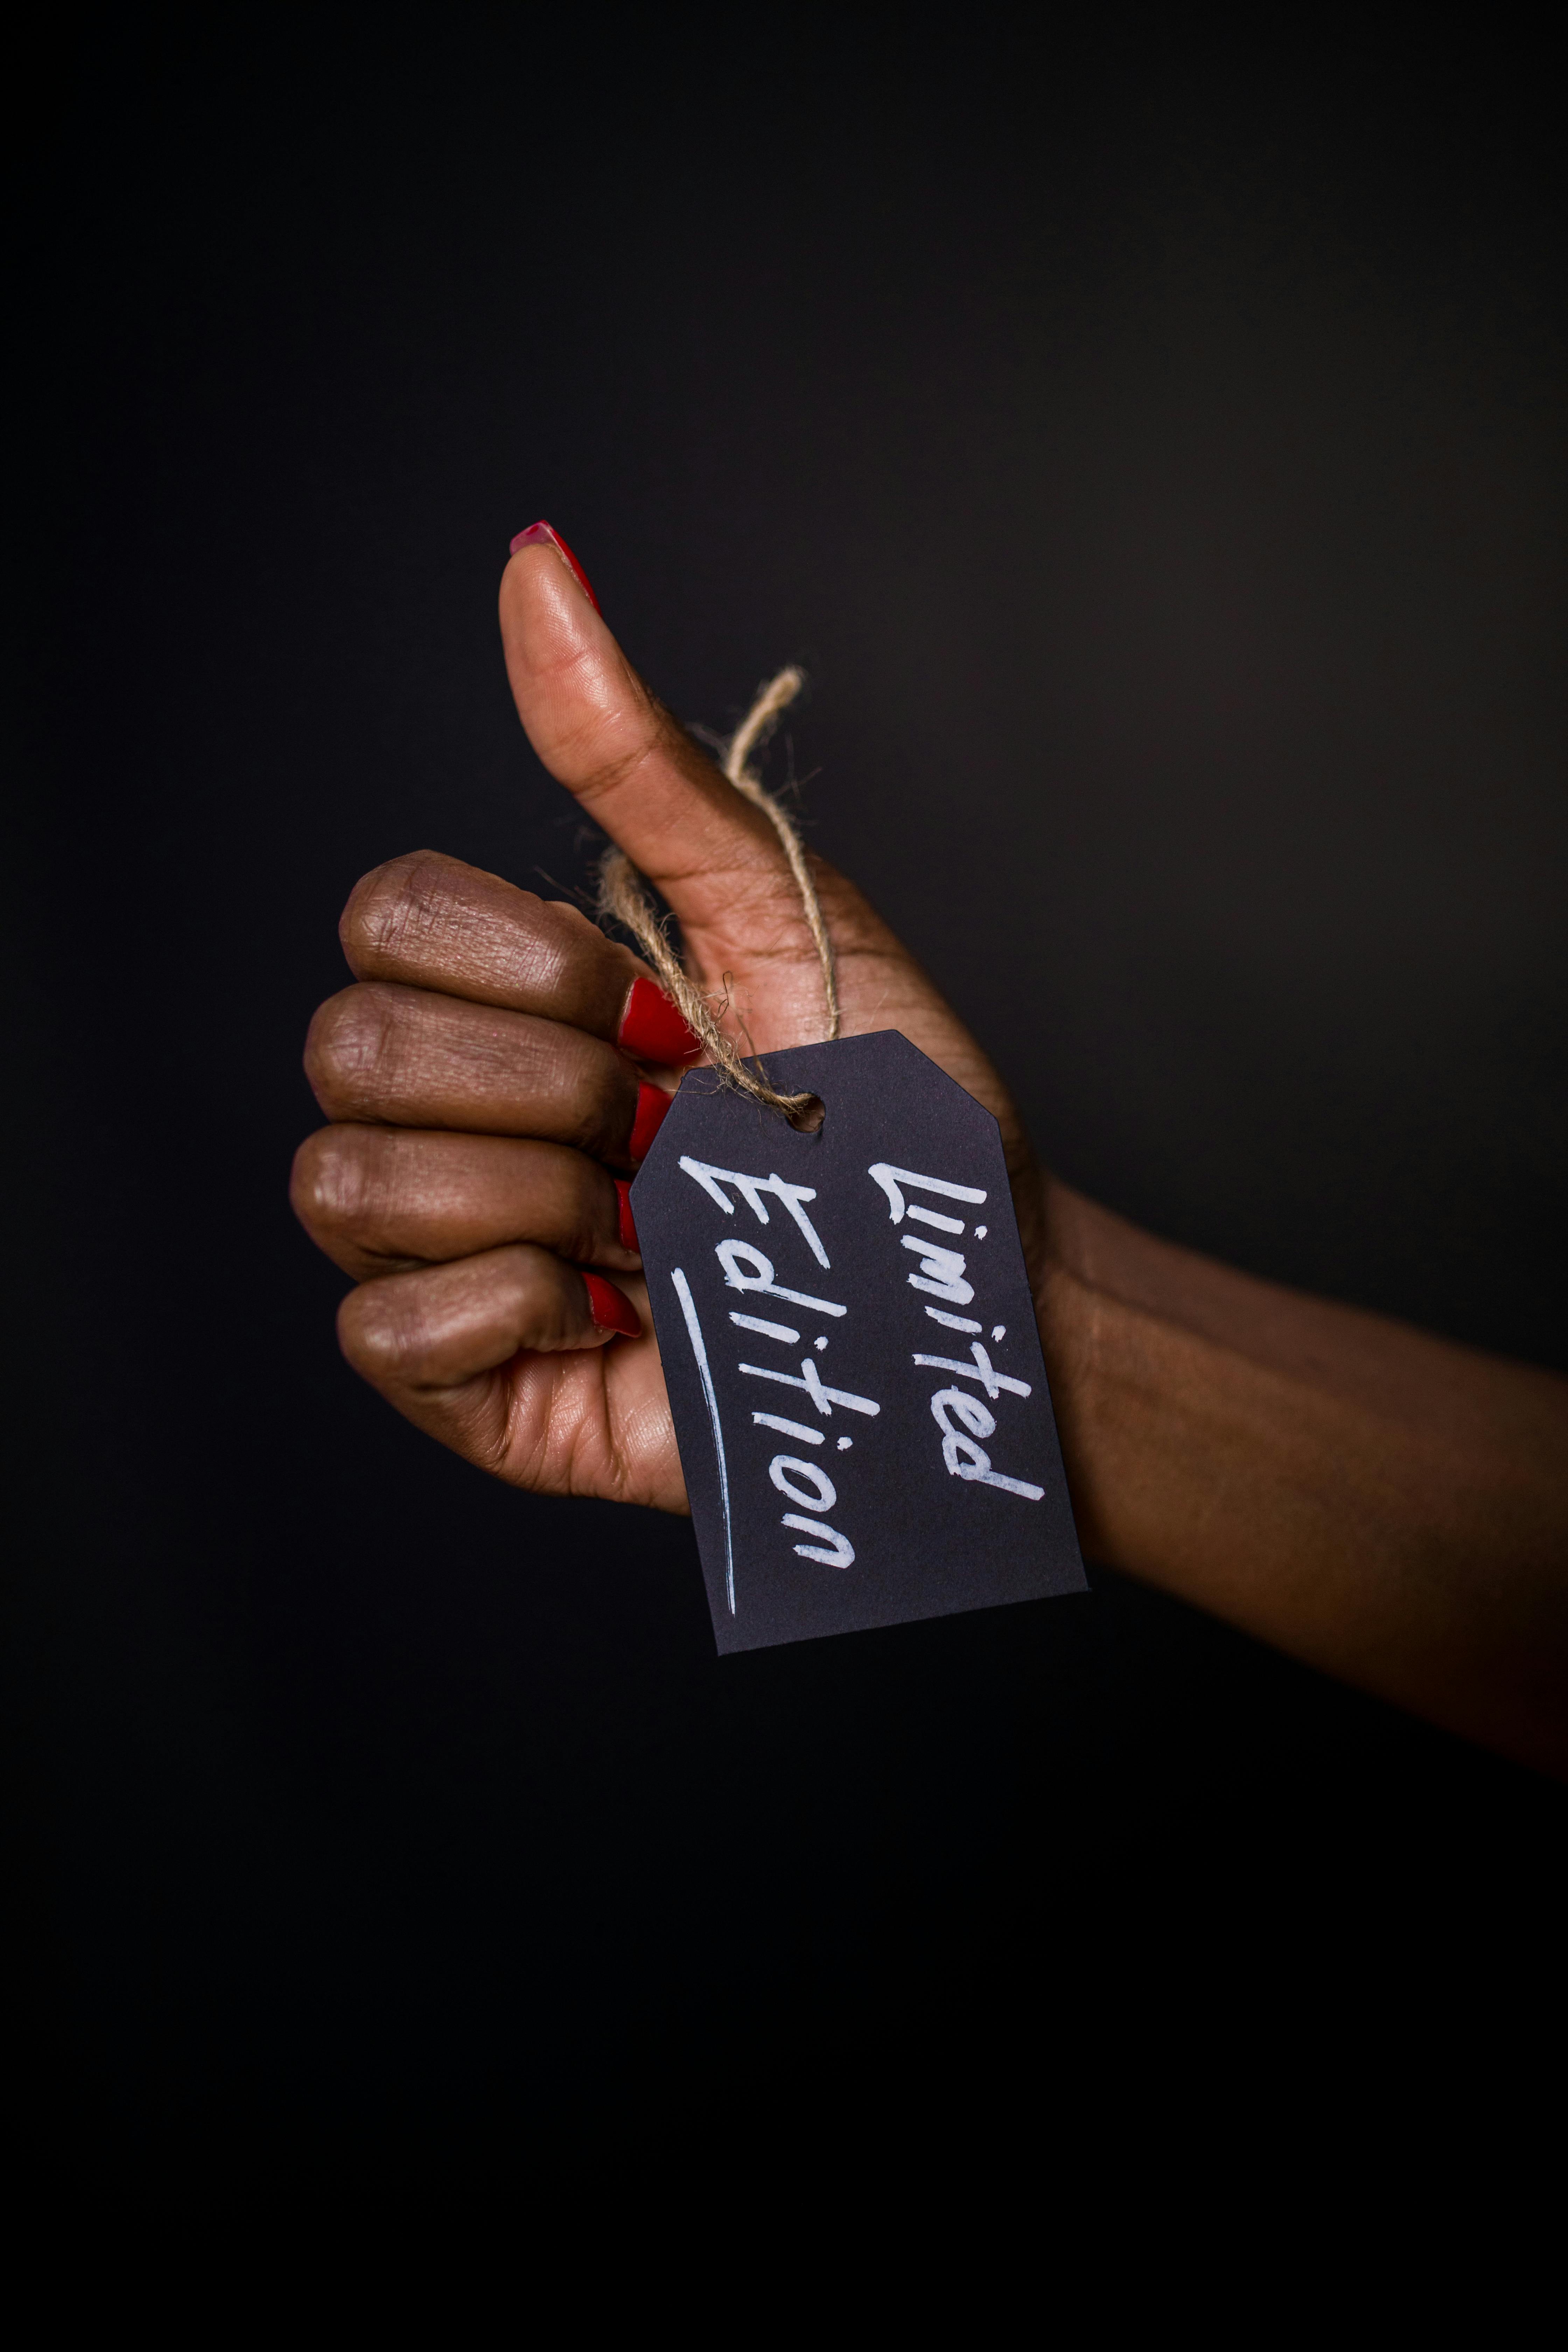 Limited
Edition